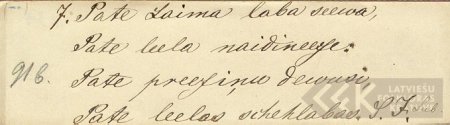 7. Pate Laima laba seewa,
Pate leela naidineeze:
916. Pate preezinu dewusi,
Pate leelas schehlabas. S. J.
LATVIEŠU